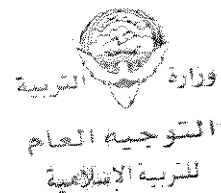 وزارة التربية
التوجيه العام
للتربية الاسلامية